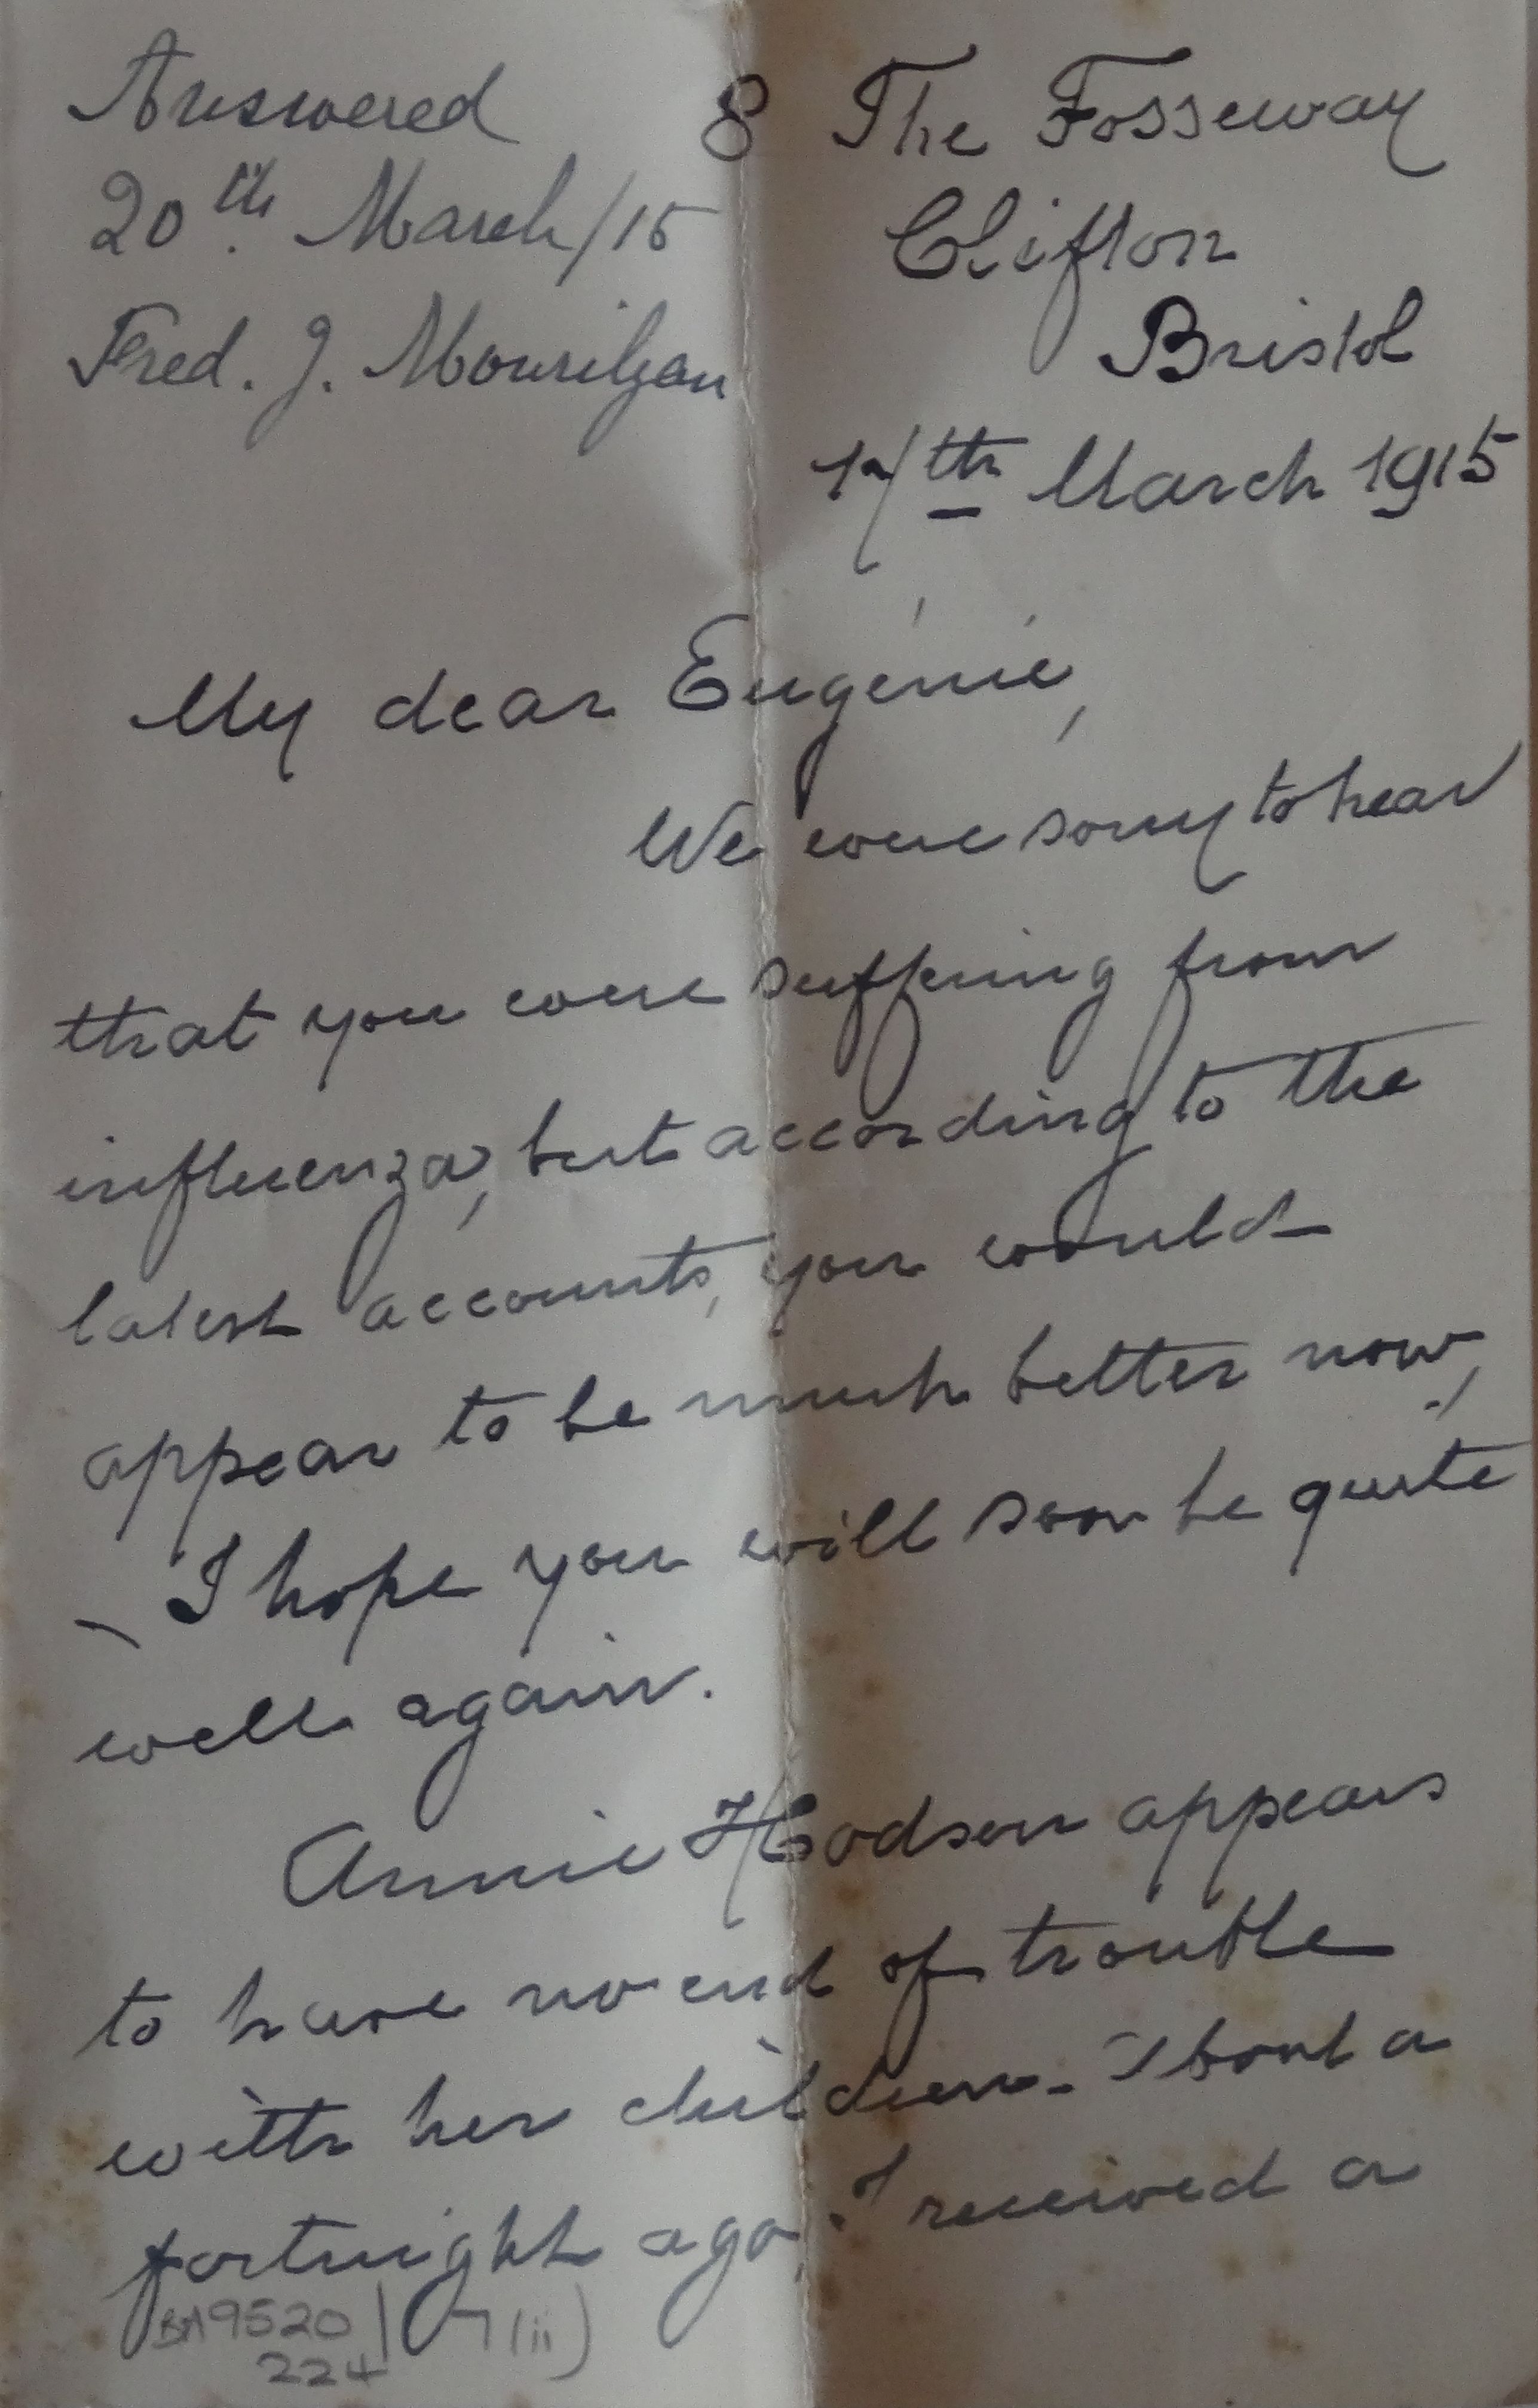 Answered
20th. March/15
Fred. J. Mourilyan
8 The Fosseway
Clifton
Bristol
17th March 1915
My dear Eugénie,
We were sorry to hear
that you were suffering from
influenza, but according to the
latest accounts, you would
appear to be much better now,
I hope you will soon be quite
well again.
Annie Hodson appears
to have no end of trouble
with her children. About a
fortnight ago, I received a
BA9520 / 7 (ii)
224